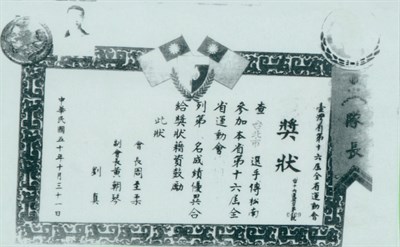 隊長
臺灣省第十六屆全省運動會
獎狀
查台北市選手傅松南
參加本省第十六屆全
省運動會
列第 名成績優異合
給獎狀藉資鼓勵
此狀
會長周至柔
副會長黃朝琴
劉真
中華民國五十年十月三十一日